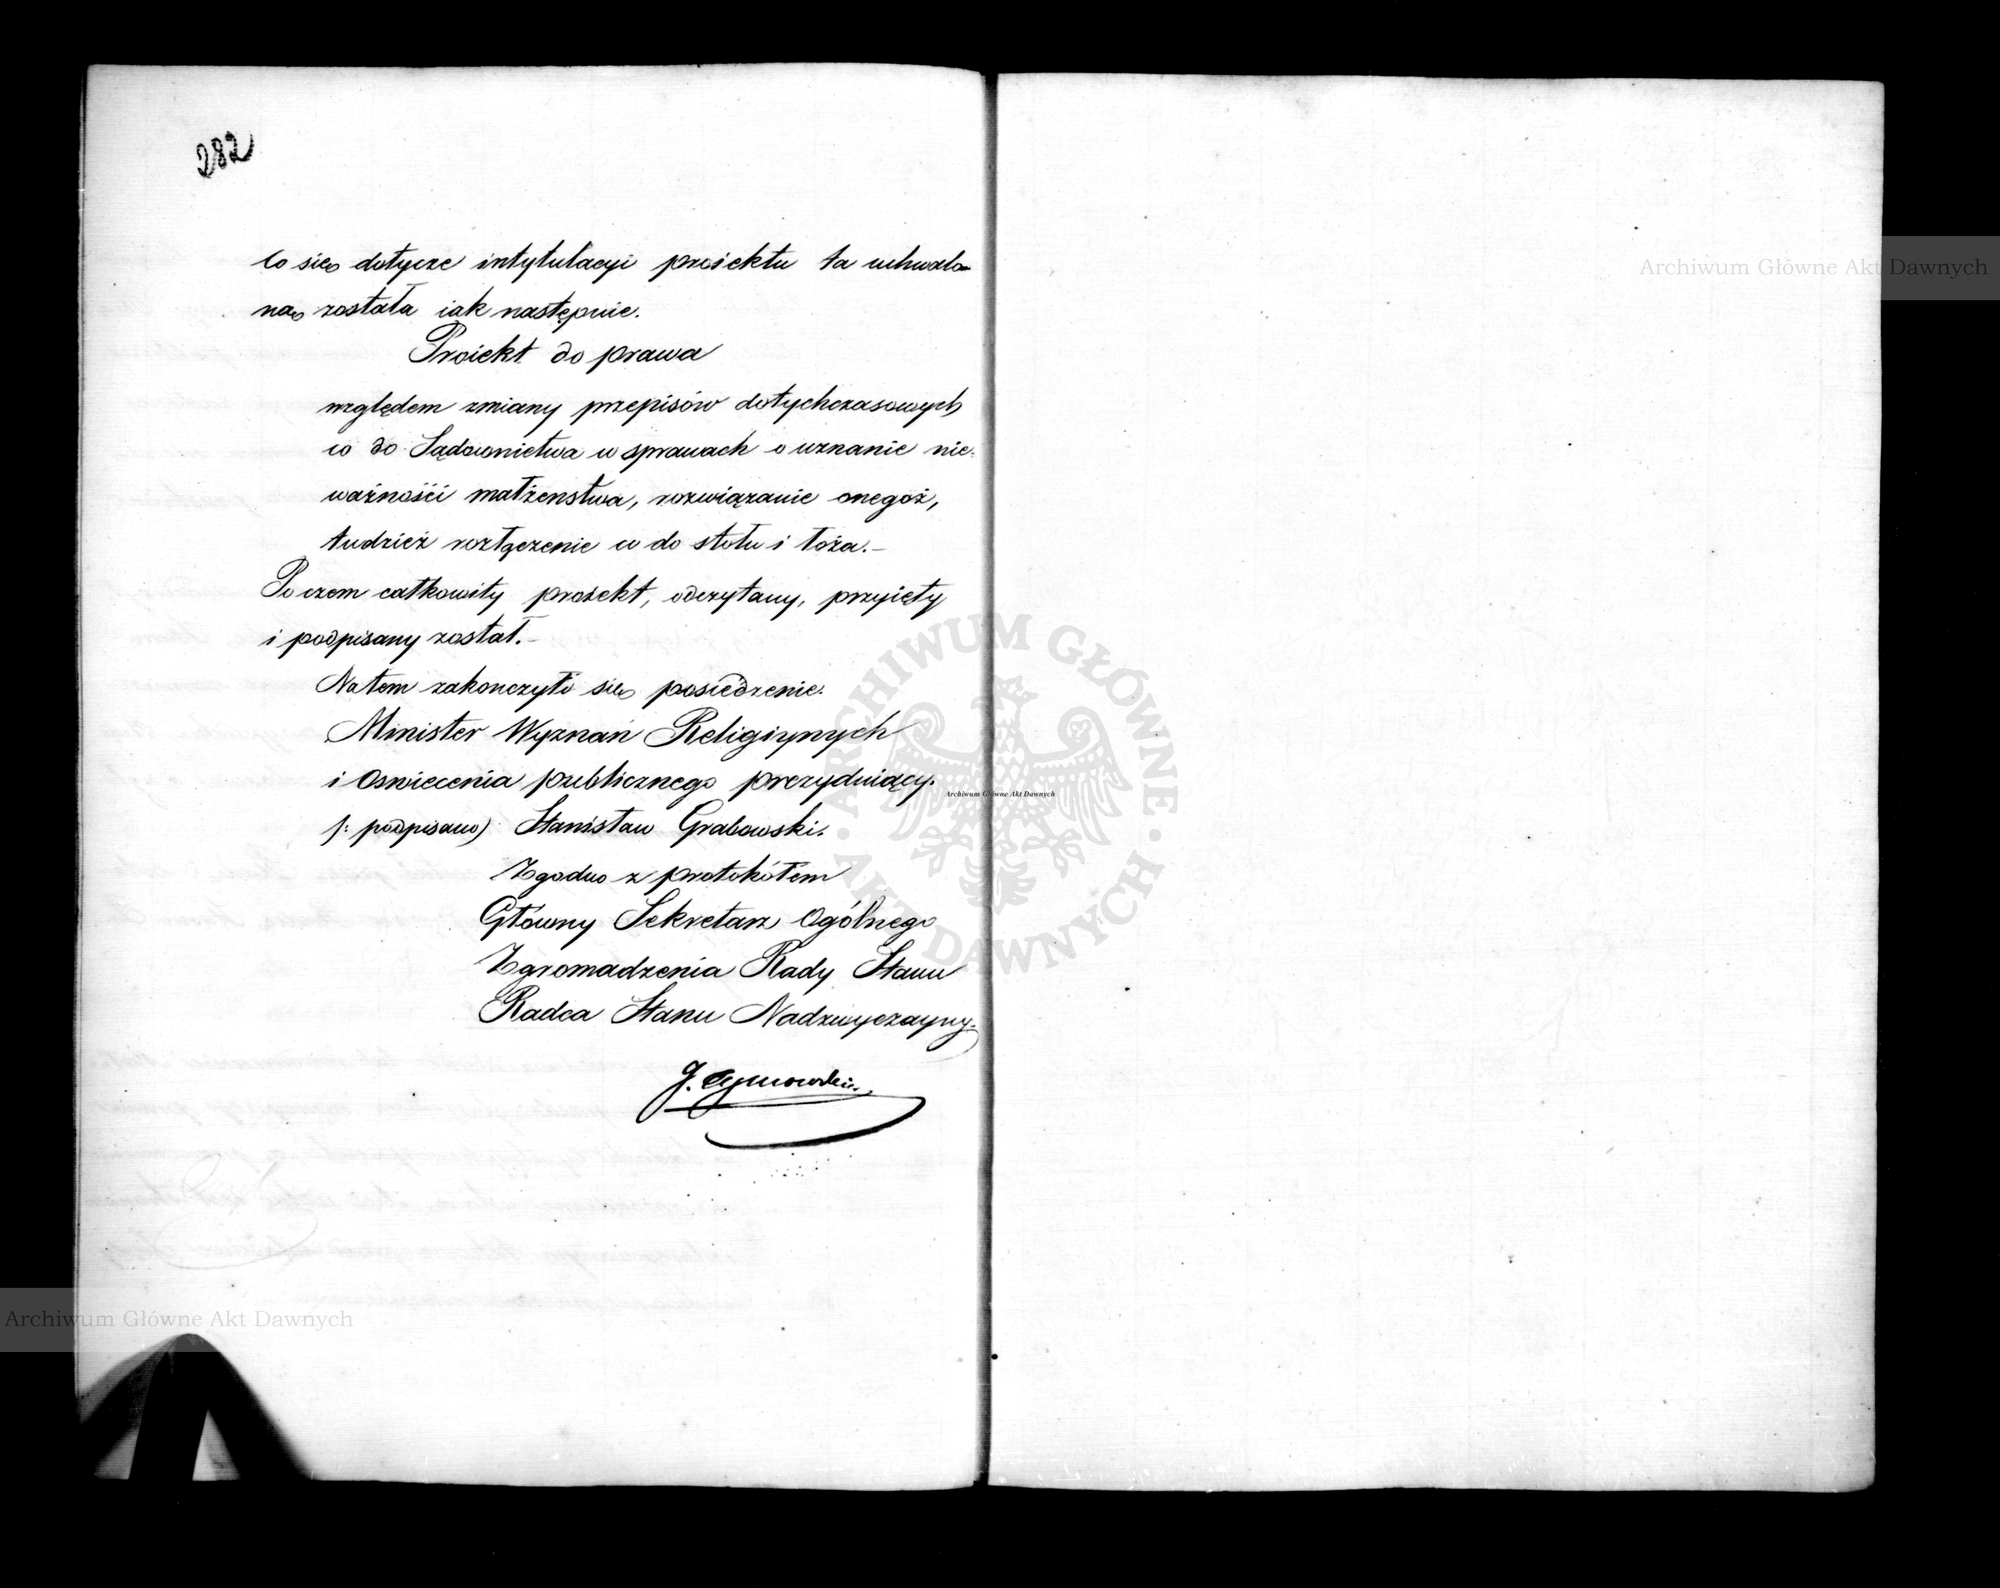 282
Co się dotycze intytulacyi proiektu ta uchwalo-
na została iak następnie.
Proiekt do prawa
względem zmiany przepisów dotychczasowych
co do Sądownictwa w sprawach o uznanie nie-
ważności małżenstwa, rozwiązanie onegoż,
tudzież rozłączenie co do stołu i łoża.–
Poczem całkowity proiekt, odczytany, przyięty
i podpisany został.–
Na tem zakonczyło się posiedzenie.
Minister Wyznań Religiynych
i Oswiecenia publicznego prezyduiący.
/: podpisano) Stanisław Grabowski.
Zgodno z protokółem
Główny Sekretarz Ogólnego
Zgromadzenia Rady Stanu
Radca Stanu Nadzwyczayny.
J. Tymowski
Archiwum Główne Akt Dawnych
Archiwum Główne Akt Dawnych
Archiwum Główne Akt Dawnych
ARCHIWUM GŁÓWNE · AKT DAWNYCH ·